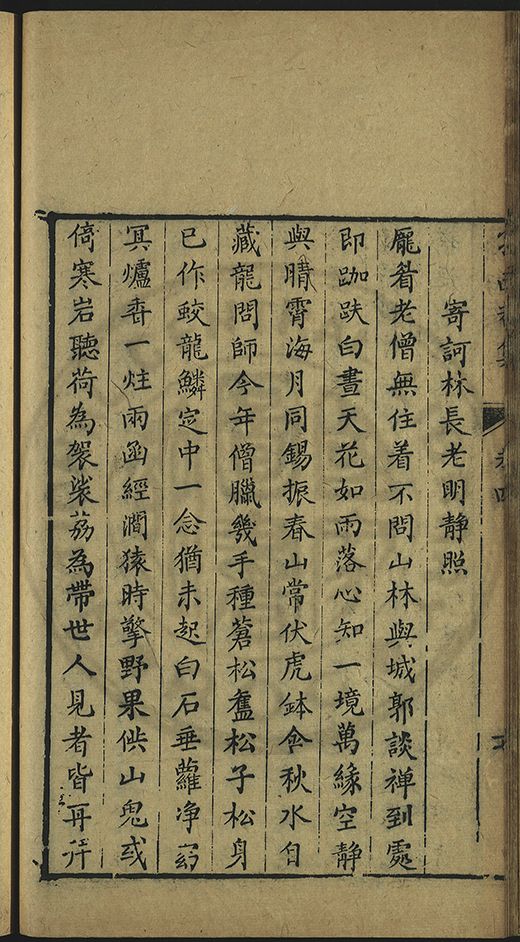 寄訶林長老明靜照
龐眉老僧無住着不問山林與城郭談禅到處
即跏趺白晝天花如雨落心知一境萬緣空静
與晴霄海月同錫振春山常伏虎鉢含秋水自
藏龍問師今年僧臘幾手種蒼松舊松子松身
已作鮫龍鱗定中一念猶未起白石垂蘿净
㝠爐香一炷雨函經澗猿時擎野果供山鬼或
倚寒岩聽荷為袈裟荔為帶世人見者皆再拜
卷四